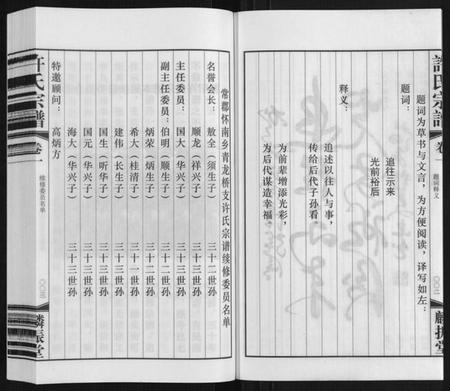 許氏宗譜
卷一
题词释义
〇〇三
麟振堂
题词:
题词为草书与文言,为方便阅读,译写如左:
追往示来
光前裕后
释义:
追述以往人与事,
传给后代子孙看
为前辈增添光彩,
为后代谋造幸福。
常郡怀南乡青龙桥支许氏宗谱续修委员名单
名誉会长:敖全(须生子) 三十二世孙
主任委员:顺龙(祥兴子) 三十二世孙
国大(华兴子) 三十三世孙
副主任委员:伯明(顺生子) 三十二世孙
炳荣(炳生子) 三十二世孙
希大(桂清子) 三十一世孙
建伟(长生子) 三十三世孙
国生(听华子) 三十三世孙
国元(华兴子) 三十三世孙
海大(华兴子) 三十三世孙
特邀顾问:高炳方
許氏宗譜
卷一
续修委员名单
麟振堂